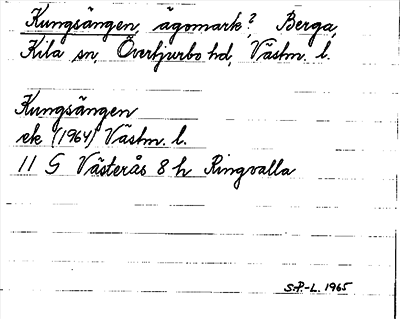 Kungsängen, ägomark?, Berga,
Kila sn, Övertjurbo hd, Västm. l.
Kungsängen
ek (1964) Västm. l.
11 G Västerås 8 h Ringvalla
S.P.-L. 1965